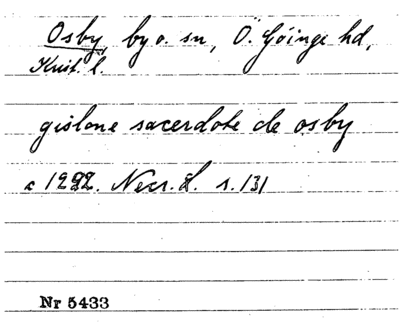 Osby, by o. sn, Ö. Göinge hd,
Krist. l.
gislone sacerdote de osby
c 1292. Necr. L. s. 131
Nr 5433